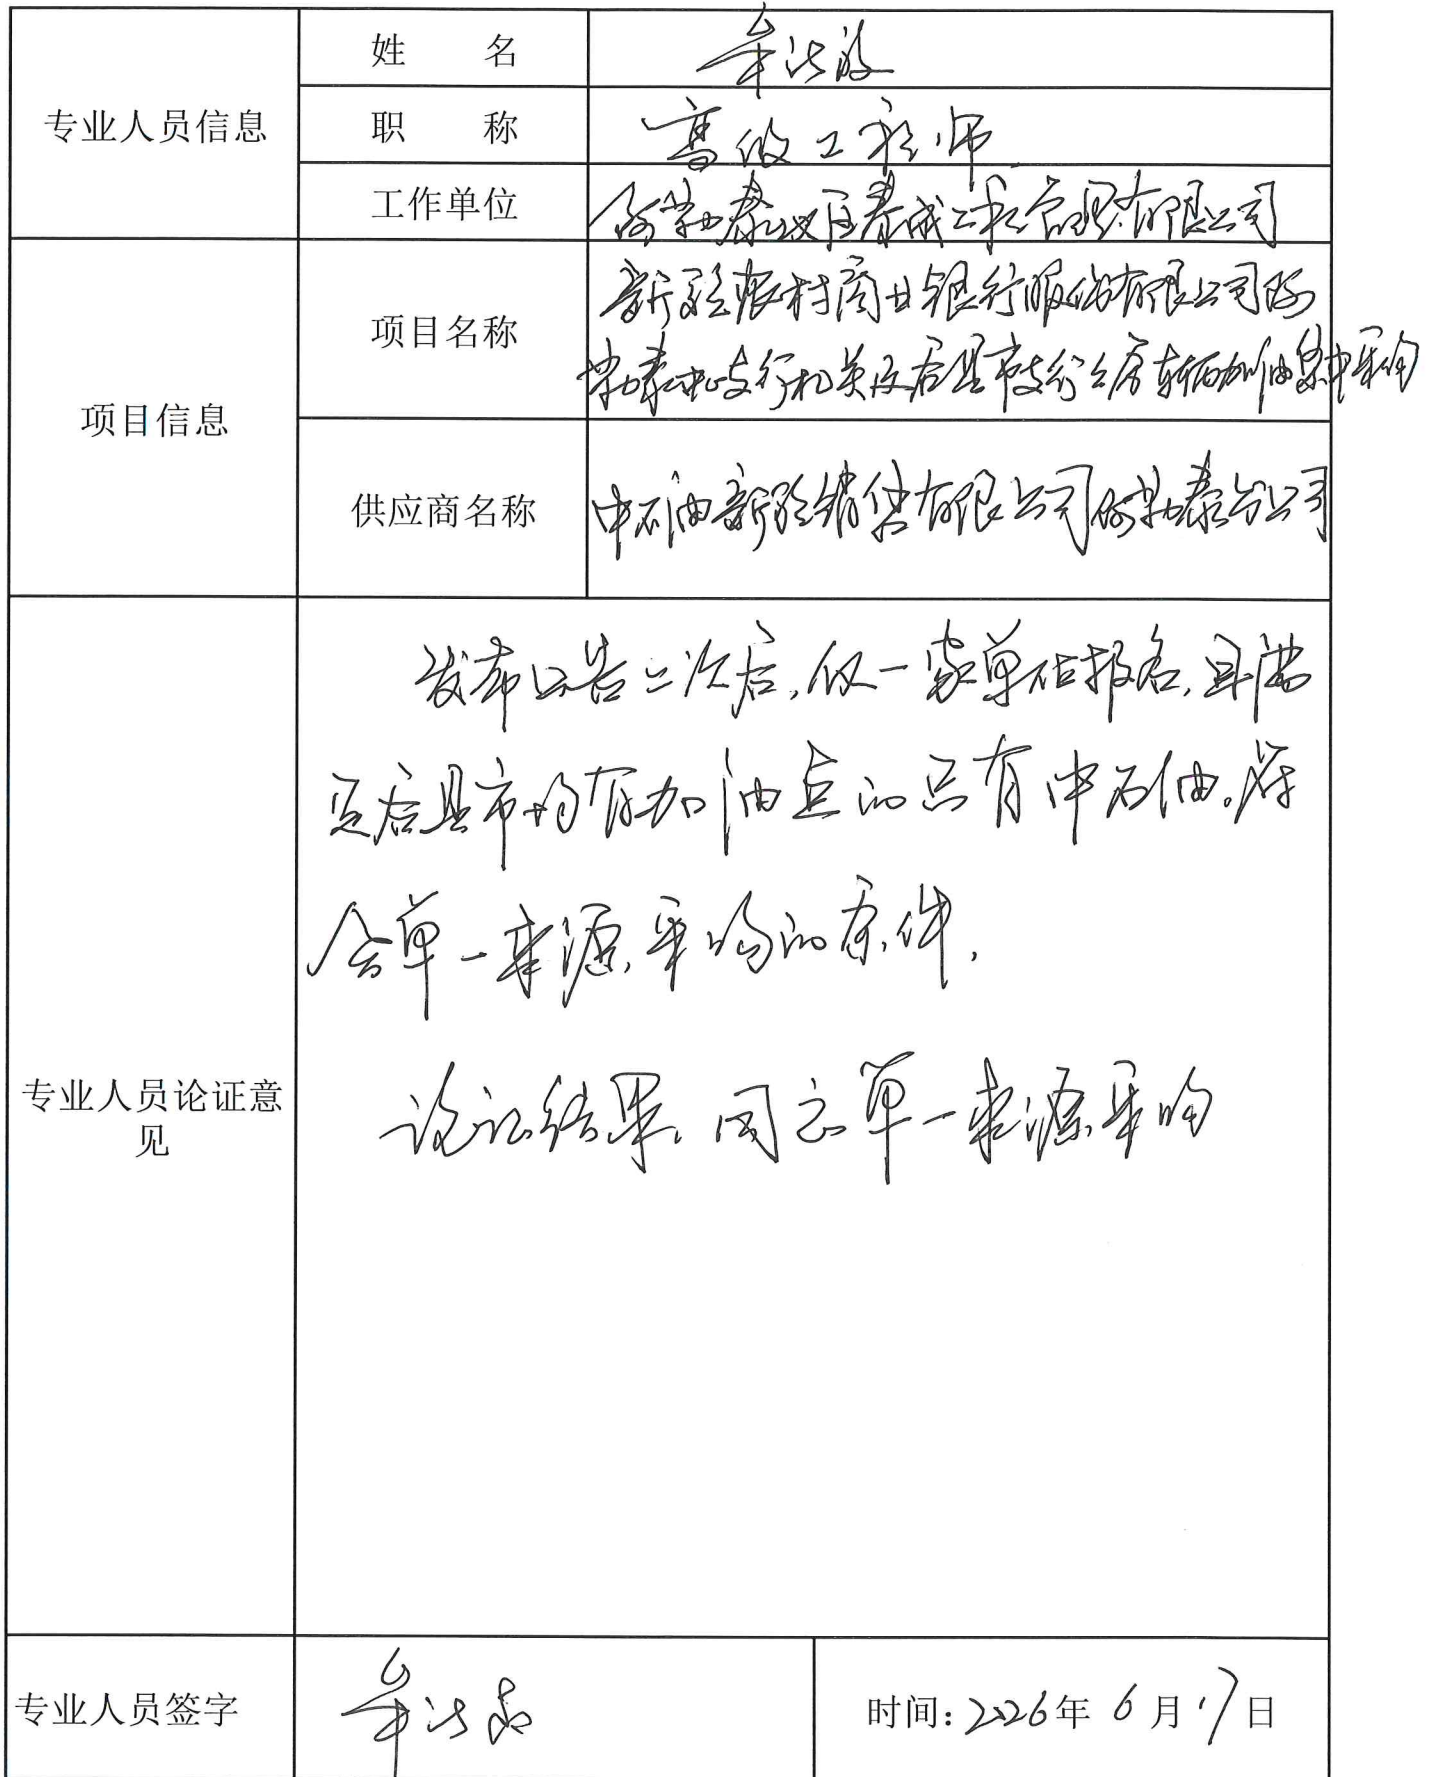 专业人员信息
姓 名 牟洪波
职 称 高级工程师
工作单位 阿勒泰地区泰成工程管理有限公司
项目信息
项目名称 新疆农村商业银行股份有限公司阿
勒泰中心支行机关及各县市支行公务车辆加油集中采购
供应商名称 中石油新疆销售有限公司阿勒泰分公司
专业人员论证意
见
发布公告二次后,仅一家单位报名,且满
足各县市均有加油点的只有中石油。符
合单一来源采购的条件,
论证结果,同意单一来源采购
专业人员签字
时间:2026年6月17日